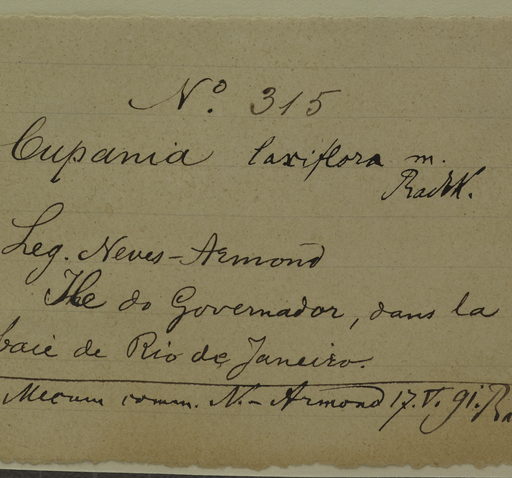 Nº. 315
Cupania laxiflora m.
Radlk.
Leg. Neves-Armond
Ile do Governador, dans la
baie de Rio de Janeiro.
Mecum comm. N.-Armond 17.V.91. Ra